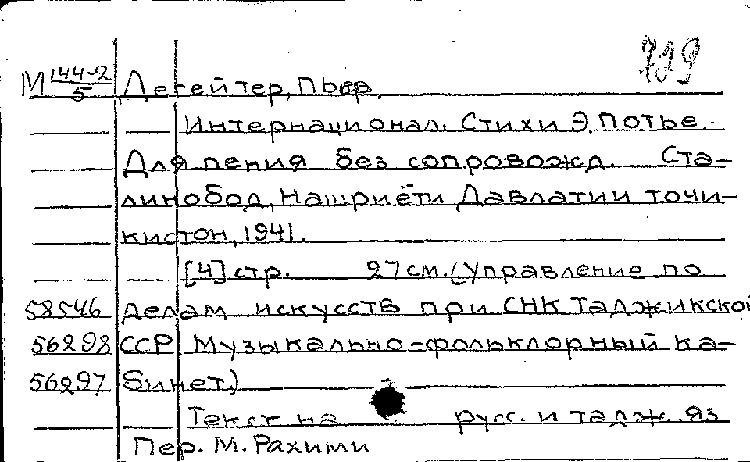 799
М 144-2/5 Дегейтер, Пьер.
Интернационал. Стихи Э. Потье.
Для пения без сопровожд. Ста-
линобод, Нашриёти Давлатии точи-
кистон, 1941.
[4] стр. 27 см. (Управление по
58546 делам искусств при СНК Таджикской
56298 ССР Музыкально-фольклорный ка-
56297 бинет)
Текст на русс. и тадж. яз
Пер. М. Рахими